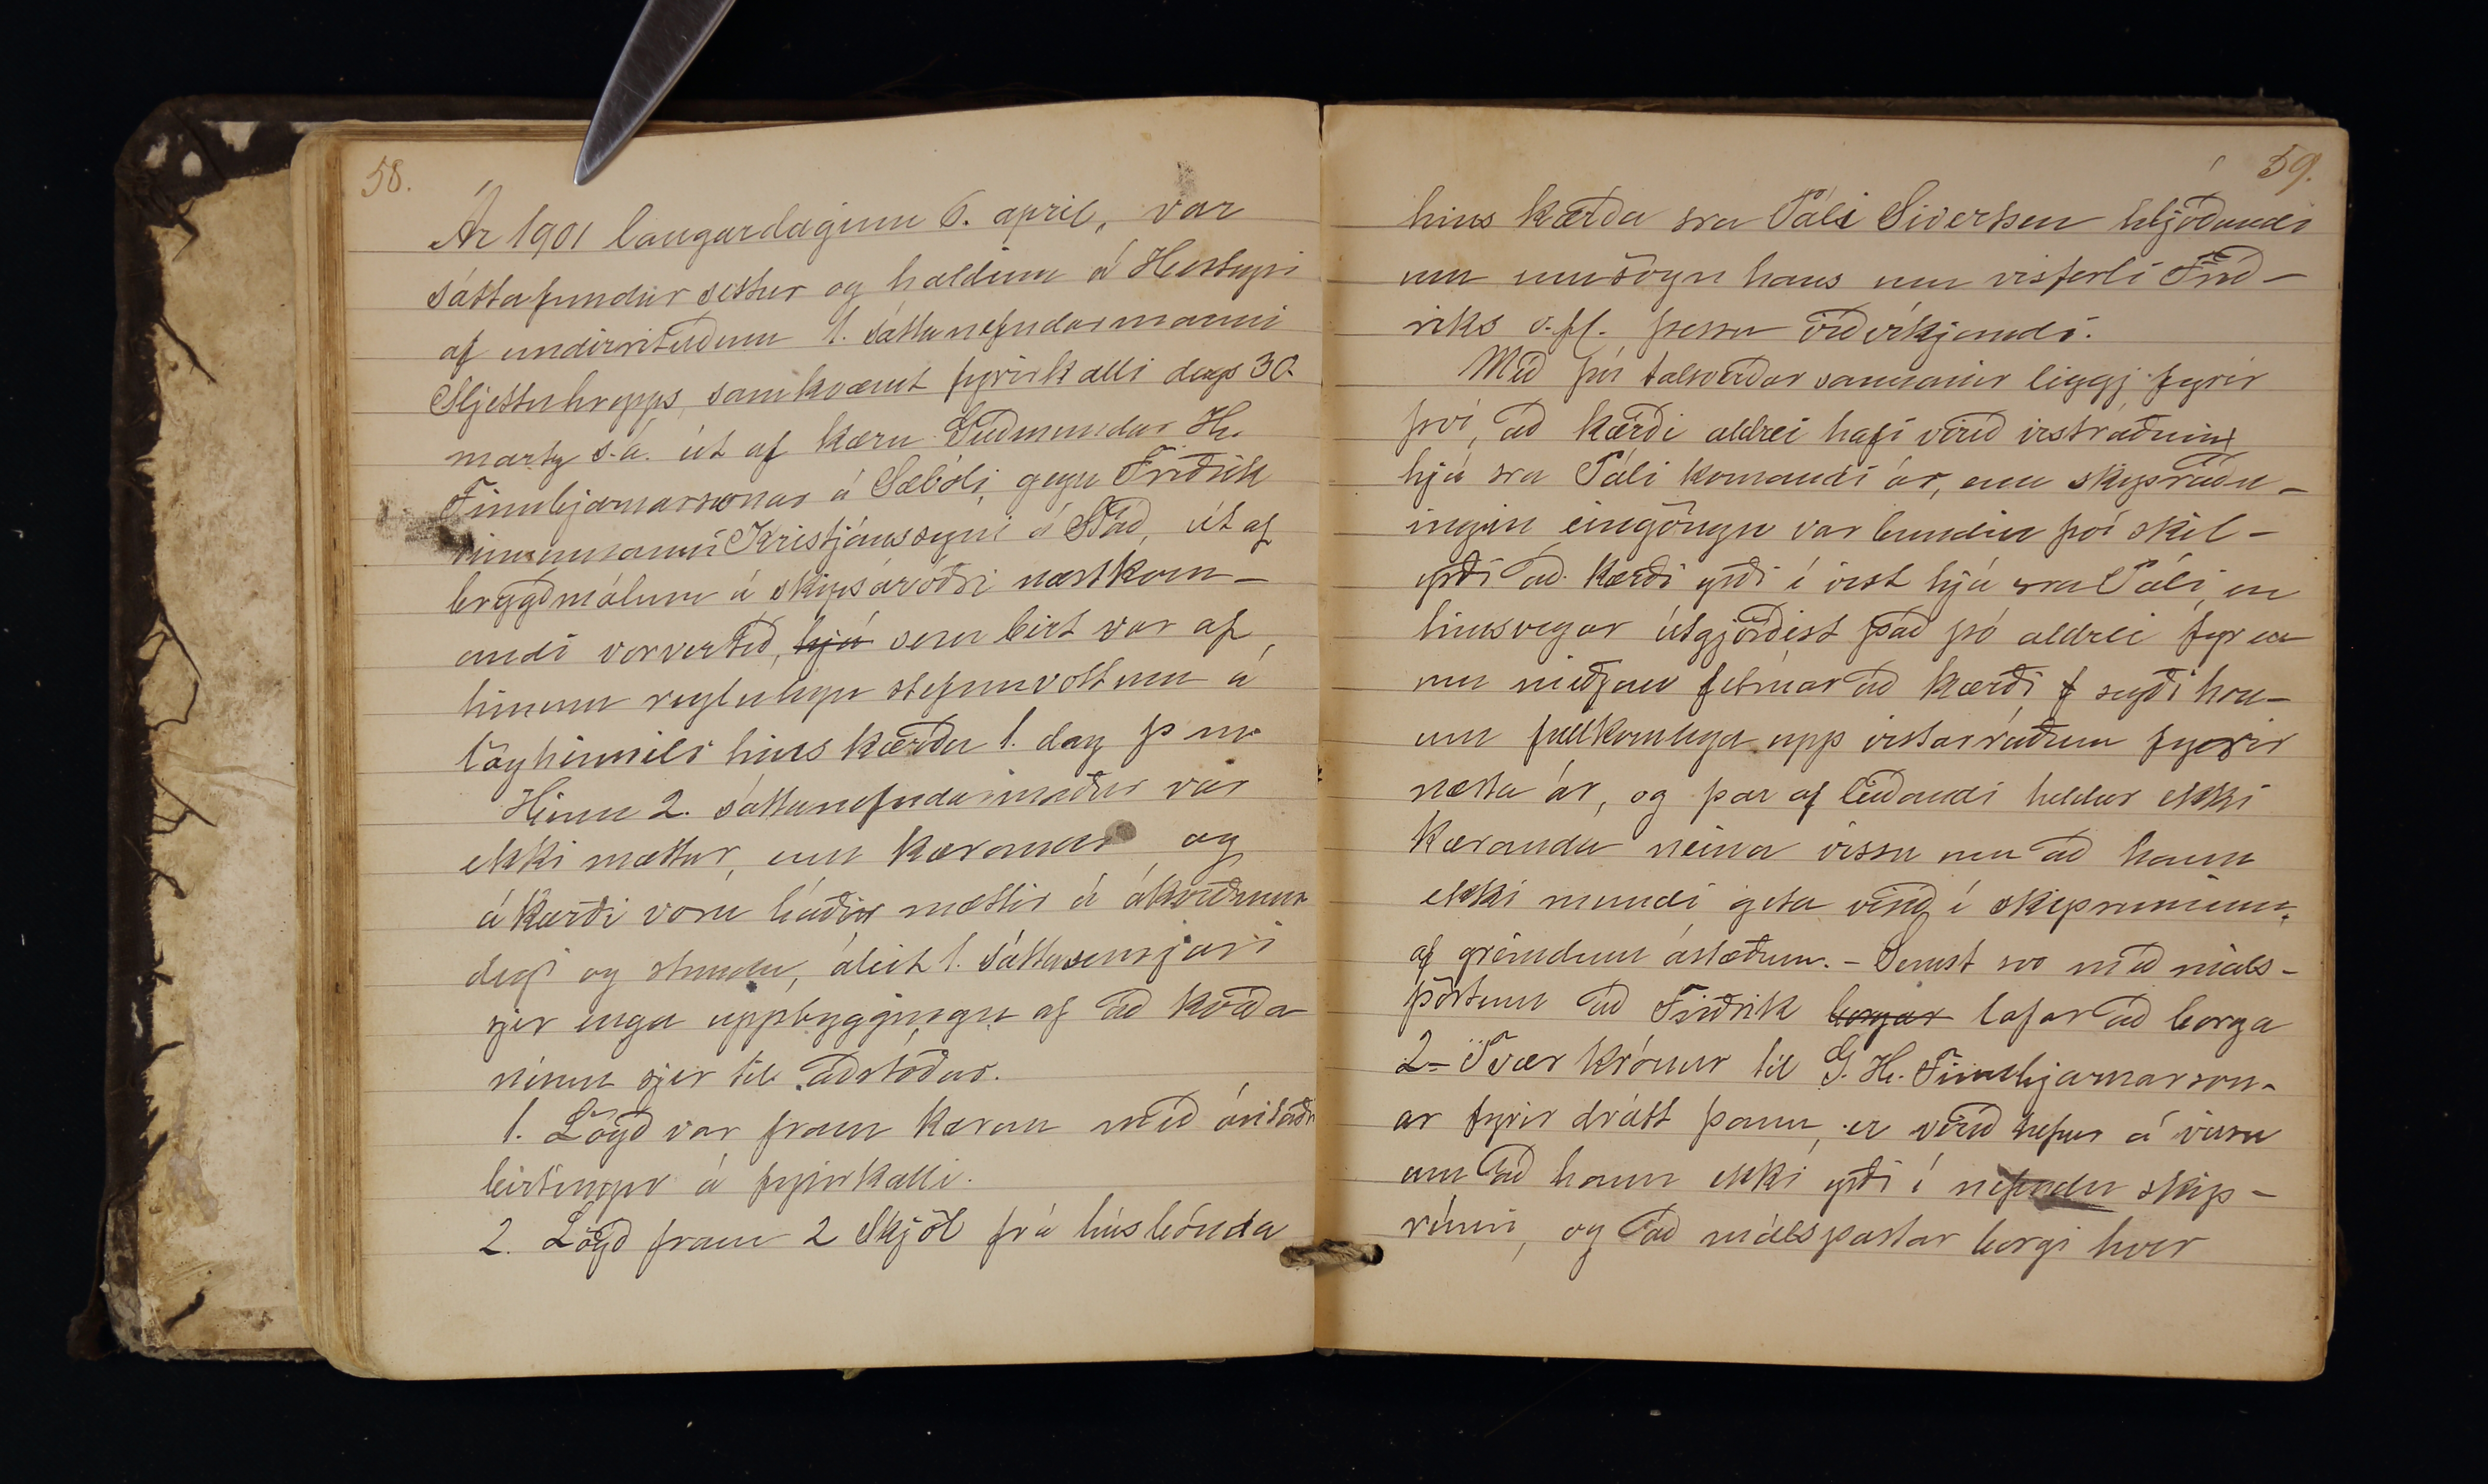 58.
Ár 1901 laugardaginn 6. apríl, var
sáttafundur settur og haldinn á Hesteyri
af undirrituðum 1. sáttanefndarmanni
Sljettuhrepps, samkvæmt fyrirkalli dags 30
marts s.á. út af kæru Guðmundar H.
Finnbjarnarsonar á Sæbóli, gegn Friðrik
vinnumanni Kristjánssyni á Stað, út af
brygðmálum á skipsáróðri næstkom-
andi vorvertíð, hjá sem birt var af
hinum reglulegu stefnuvottum á
lögheimili hins kærða 1. dag þ m.
Hinn 2. sáttanefndarmaður var
ekki mættur, enn kærandi og
ákærði voru báðir mættir á ákveðnum
degi og stundu, áleit 1. sáttasemjari
sjer enga uppbyggingu af að kveða
neinn sjer til aðstoðar.
1. Lögð var fram kæran með árituðri
birtingu á fyrirkalli.
2. Lögð fram 2 skjöl frá húsbónda
59.
hins kærða sra Páli Sivertsen hljóðandi
um umsögn hans um visferli Frið-
riks o.fl. þessu viðvíkjandi.
Með því talsverðar sannanir liggj fyrir
því, að kærði aldrei hafi verið vistráðinn
hjá sra Páli komandi ár, enn skipsráðn-
ingin eingöngu var bundin því skil-
yrði að kærði yrði í vist hjá sra Páli, en
hinsvegar útgjörðist það þó aldrei fyr en
um miðjan febrúar að kærði, f sagði hon-
um fullkomlega upp vistarráðum fyrir
næsta ár, og þar af leiðandi heldur ekki
kæranda neina vissu um að hann
ekki mundi geta verið í skiprúminu,
af greindum ástæðum. - Semst svo með máls-
pörtum að Friðrik borgar lofar að borga
2- Tvær krónur til G. H. Finnbjarnarson-
ar fyrir drátt þann, er verið hefur á vissu
um að hann ekki yrði í nefndu skip-
rúmi, og að málspartar borgi hver